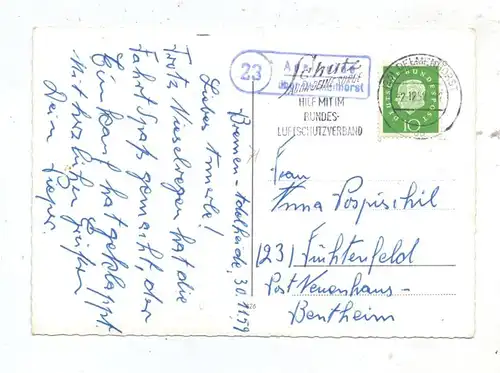 Bremen-Adelheide, 30.11.59
Liebes Annerle!
Trotz Nieselregen hat die
Fahrt Spaß gemacht, der
Einkauf hat geklappt.
Mit herzlichen Grüßen
Dein
23
über
horst
Schutz
HILF MIT IM
BUNDES-
LUFTSCHUTZVERBAND
DELMENHORST
DEUTSCHE BUNDESPOST
10
Frau
Anna Pospischil
(23) Füchtenfeld
Post Neuenhaus-
Bentheim